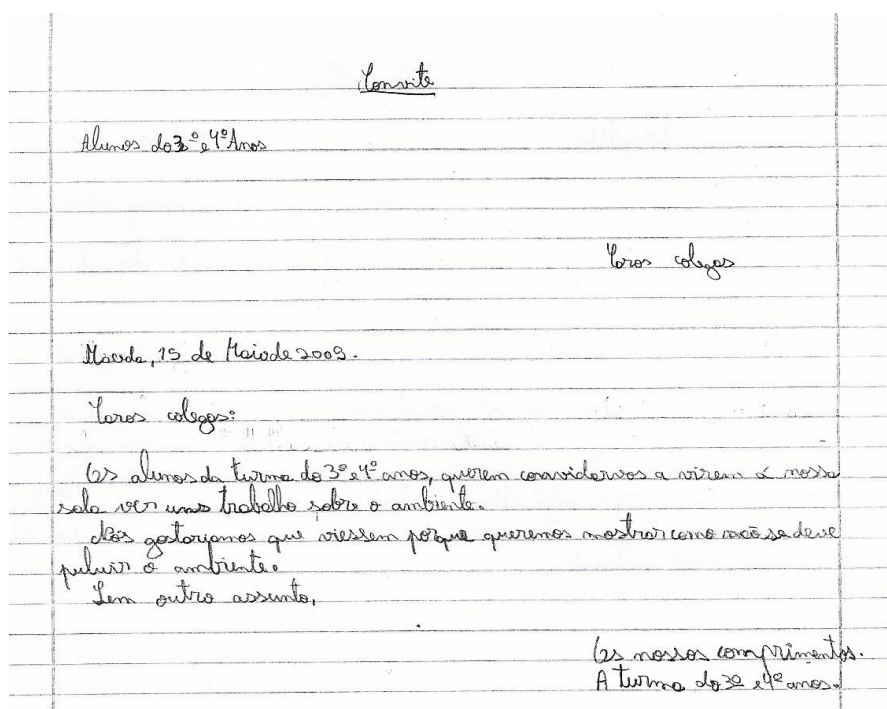 Convite
Alunos do 3º e 4º Anos
Caros colegas
Maceda, 15 de Maio de 2009.
Caros colegas:
Os alunos da turma do 3º e 4º anos, querem convidarvos a virem á nossa
sala ver uns trabalho sobre o ambiente.
Nós gostariamos que viessem porque queremos mostrar como não se deve
puluir o ambiente.
Sem outro assunto,
Os nossos comprimentos.
A turma do 3º e 4º anos.